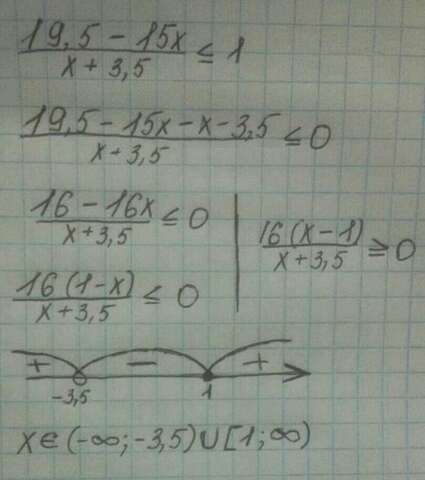 (19,5 - 15x)/(x + 3,5) ≤ 1
(19,5 - 15x - x - 3,5)/(x + 3,5) ≤ 0
(16 - 16x)/(x + 3,5) ≤ 0
16(1 - x)/(x + 3,5) ≤ 0
16(x - 1)/(x + 3,5) ≥ 0
+ − +
-3,5 1
x ∈ (-∞; -3,5) ∪ [1; ∞)